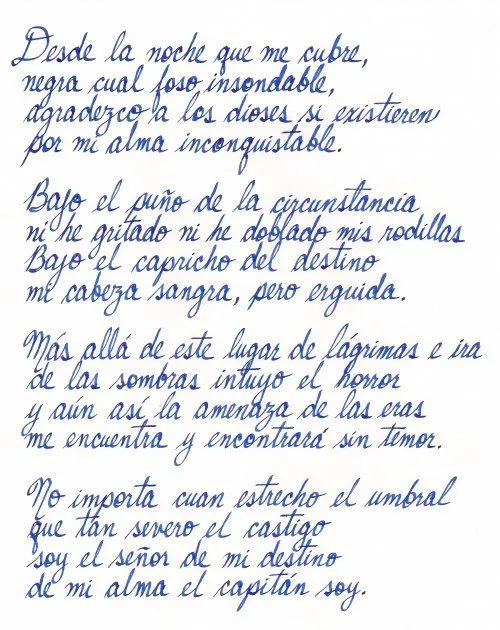 Desde la noche que me cubre,
negra cual foso insondable,
agradezco a los dioses si existieren
por mi alma inconquistable.

Bajo el puño de la circunstancia
ni he gritado ni he doblado mis rodillas
Bajo el capricho del destino
mi cabeza sangra, pero erguida.

Más allá de este lugar de lágrimas e ira
de las sombras intuyo el horror
y aún así la amenaza de las eras
me encuentra y encontrará sin temor.

No importa cuan estrecho el umbral
que tan severo el castigo
soy el señor de mi destino
de mi alma el capitán soy.